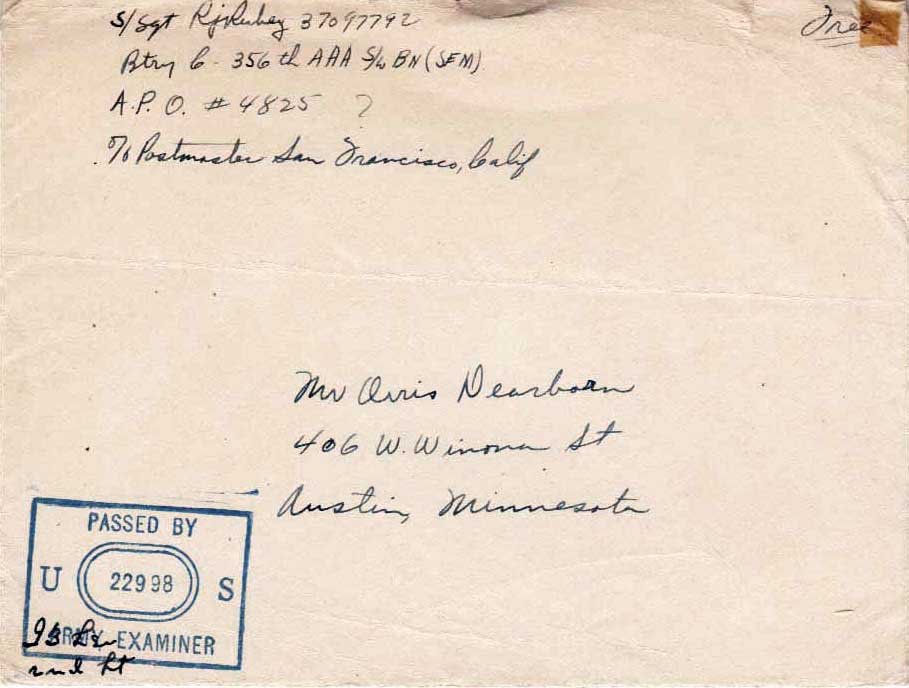 S/Sgt RJ 37097792
Free
Btry C - 356th AAA S/L BN (SEM)
A.P.O. # 4825 ?
℅ Postmaster San Francisco, Calif
Mr Orris Dearborn
406 W. Winona St
Austin, Minnesota
PASSED BY
U 22998 S
ARMY EXAMINER
2nd Lt